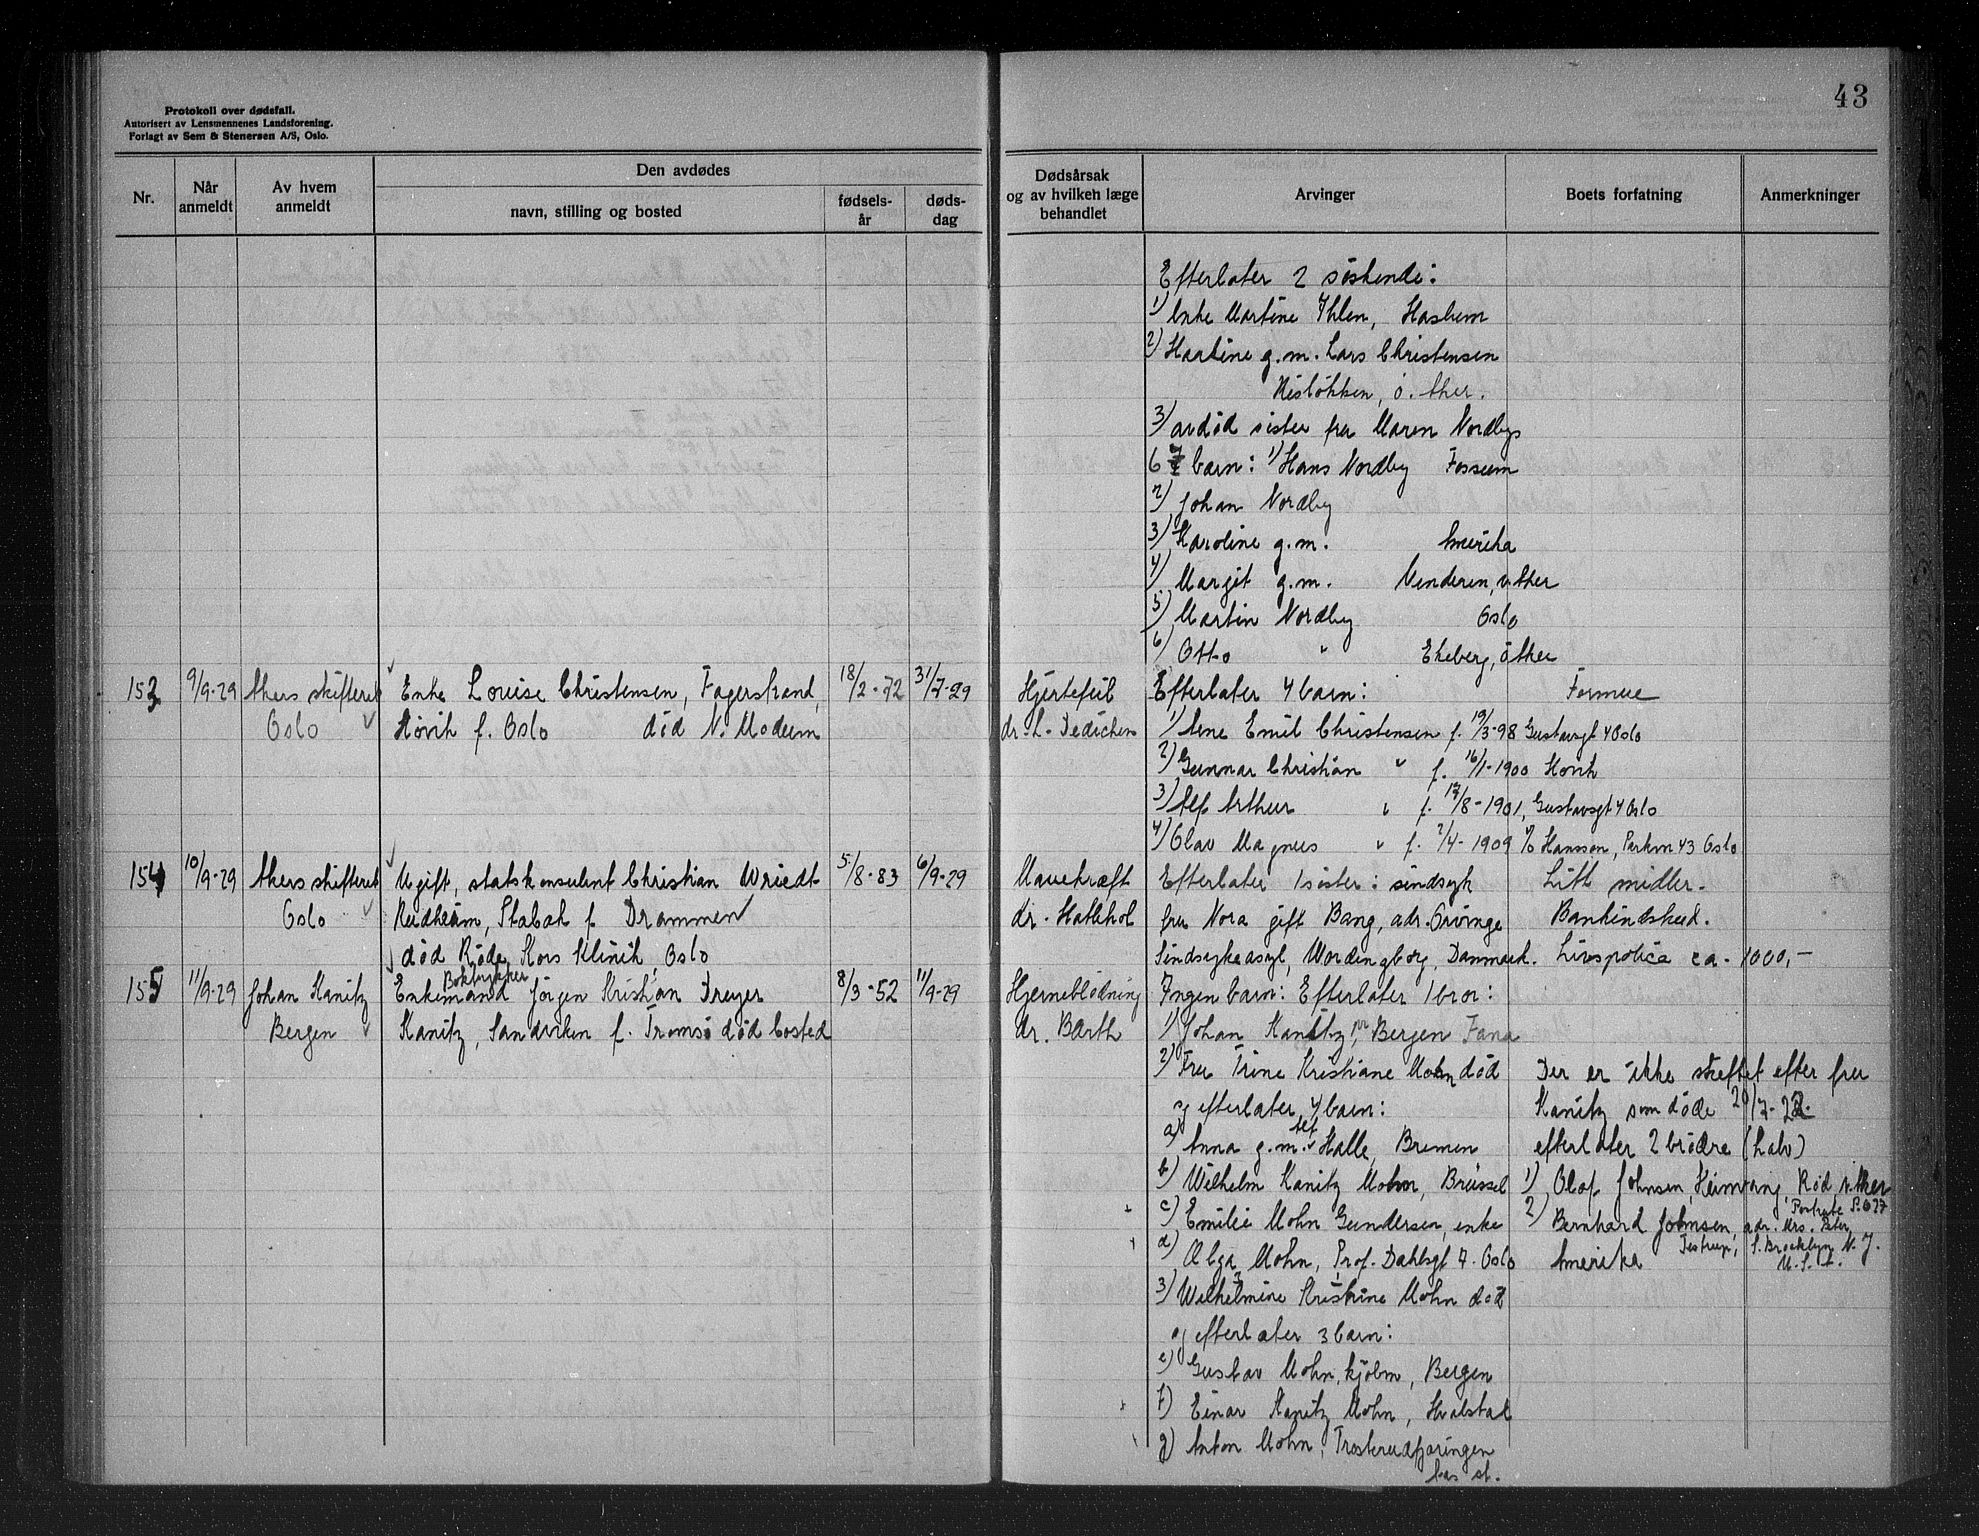 Protokoll over dødsfall.
Autorisert av Lensmennenes Landsforening.
Forlagt av Sem & Stenersen A/S, Oslo.
43
Nr.
Når anmeldt
Av hvem anmeldt
Den avdødes
navn, stilling og bosted
fødsels-år
døds-dag
Dødsårsak og av hvilken læge behandlet
Arvinger
Boets forfatning
Anmerkninger
Efterlater 2 søskende:
1) Enke Martine Ihlen, Haslum
2) Martine g.m. Lars Christensen
Risløkken, ø. Aker.
3) avdød søster fru Maren Nordbys
6 barn: 1) Hans Nordby Fossum
2) Johan Nordby
3) Karoline g.m. Amerika
4) Margit g.m. Vinderen, v. Aker
5) Martin Nordby Oslo
6) Otto " Ekeberg, ø Aker
153 9/9-29 Akers skifteret Enke Louise Christensen, Fagerstrand, 18/2-72 31/7-29 Hjertefeil Efterlater 4 barn: Formue
Oslo Høvik f. Oslo død N. Modum dr. L. Dedichen 1) Arne Emil Christensen f. 19/3-98 Gustavsgt 4 Oslo
2) Gunnar Christian " f. 16/1-1900 Høvik
3) Alf Arthur " f. 17/8-1901, Gustavsgt 4 Oslo
4) Olav Magnus " f. 2/4-1909 % Hansson, Parkvn 43 Oslo
154 10/9-29 Akers skifteret Ugift, statskonsulent Christian Wriedt 5/8-83 6/9-29 Mavekræft Efterlater 1 søster: sindsyk Litt midler.
Oslo Stabæk f. Drammen dr. Hatlehol fru Nora gift Bang, adr. Oringe Bankindskud.
død Røde Kors Klinik, Oslo Sindsykeasyl, Wordingborg, Danmark. Livspolice ca. 1000,-
Boktrykker
155 11/9-29 Johan Kanitz Enkemand Jørgen Kristian Dreyer 8/3-52 11/9-29 Hjerneblødning Ingen barn: Efterlater 1 bror:
Bergen Kanitz, Sandviken f. Tromsø død bosted dr. Barth 1) Johan Kanitz, Bergen Fana
2) Fru Trine Kristiane Mohn død Der er ikke skiftet efter fru
og efterlater 4 barn: Kanitz som døde 20/7-22
a) Anna g.m. Alf Halle, Bremen efterlater 2 brødre (halv)
b) Wilhelm Kanitz Mohn, Brüssel 1) Olaf Johnsen, Heimvang, Rød, v. Aker
c) Emilie Mohn Gundersen, enke 2) Bernhard Johnsen, adr. Mrs. Peter
d) Olga Mohn, Prof. Dahlsgt 7. Oslo Amerika Testrup, S. Brooklyn N.J.
U.S.A.
3) Wilhelmine Kristine Mohn død
og efterlater 3 barn:
e) Gustav Mohn, kjøbm, Bergen
f) Einar Kanitz Mohn, Hvalstad
g) Anton Mohn, Trosterudfjaringen